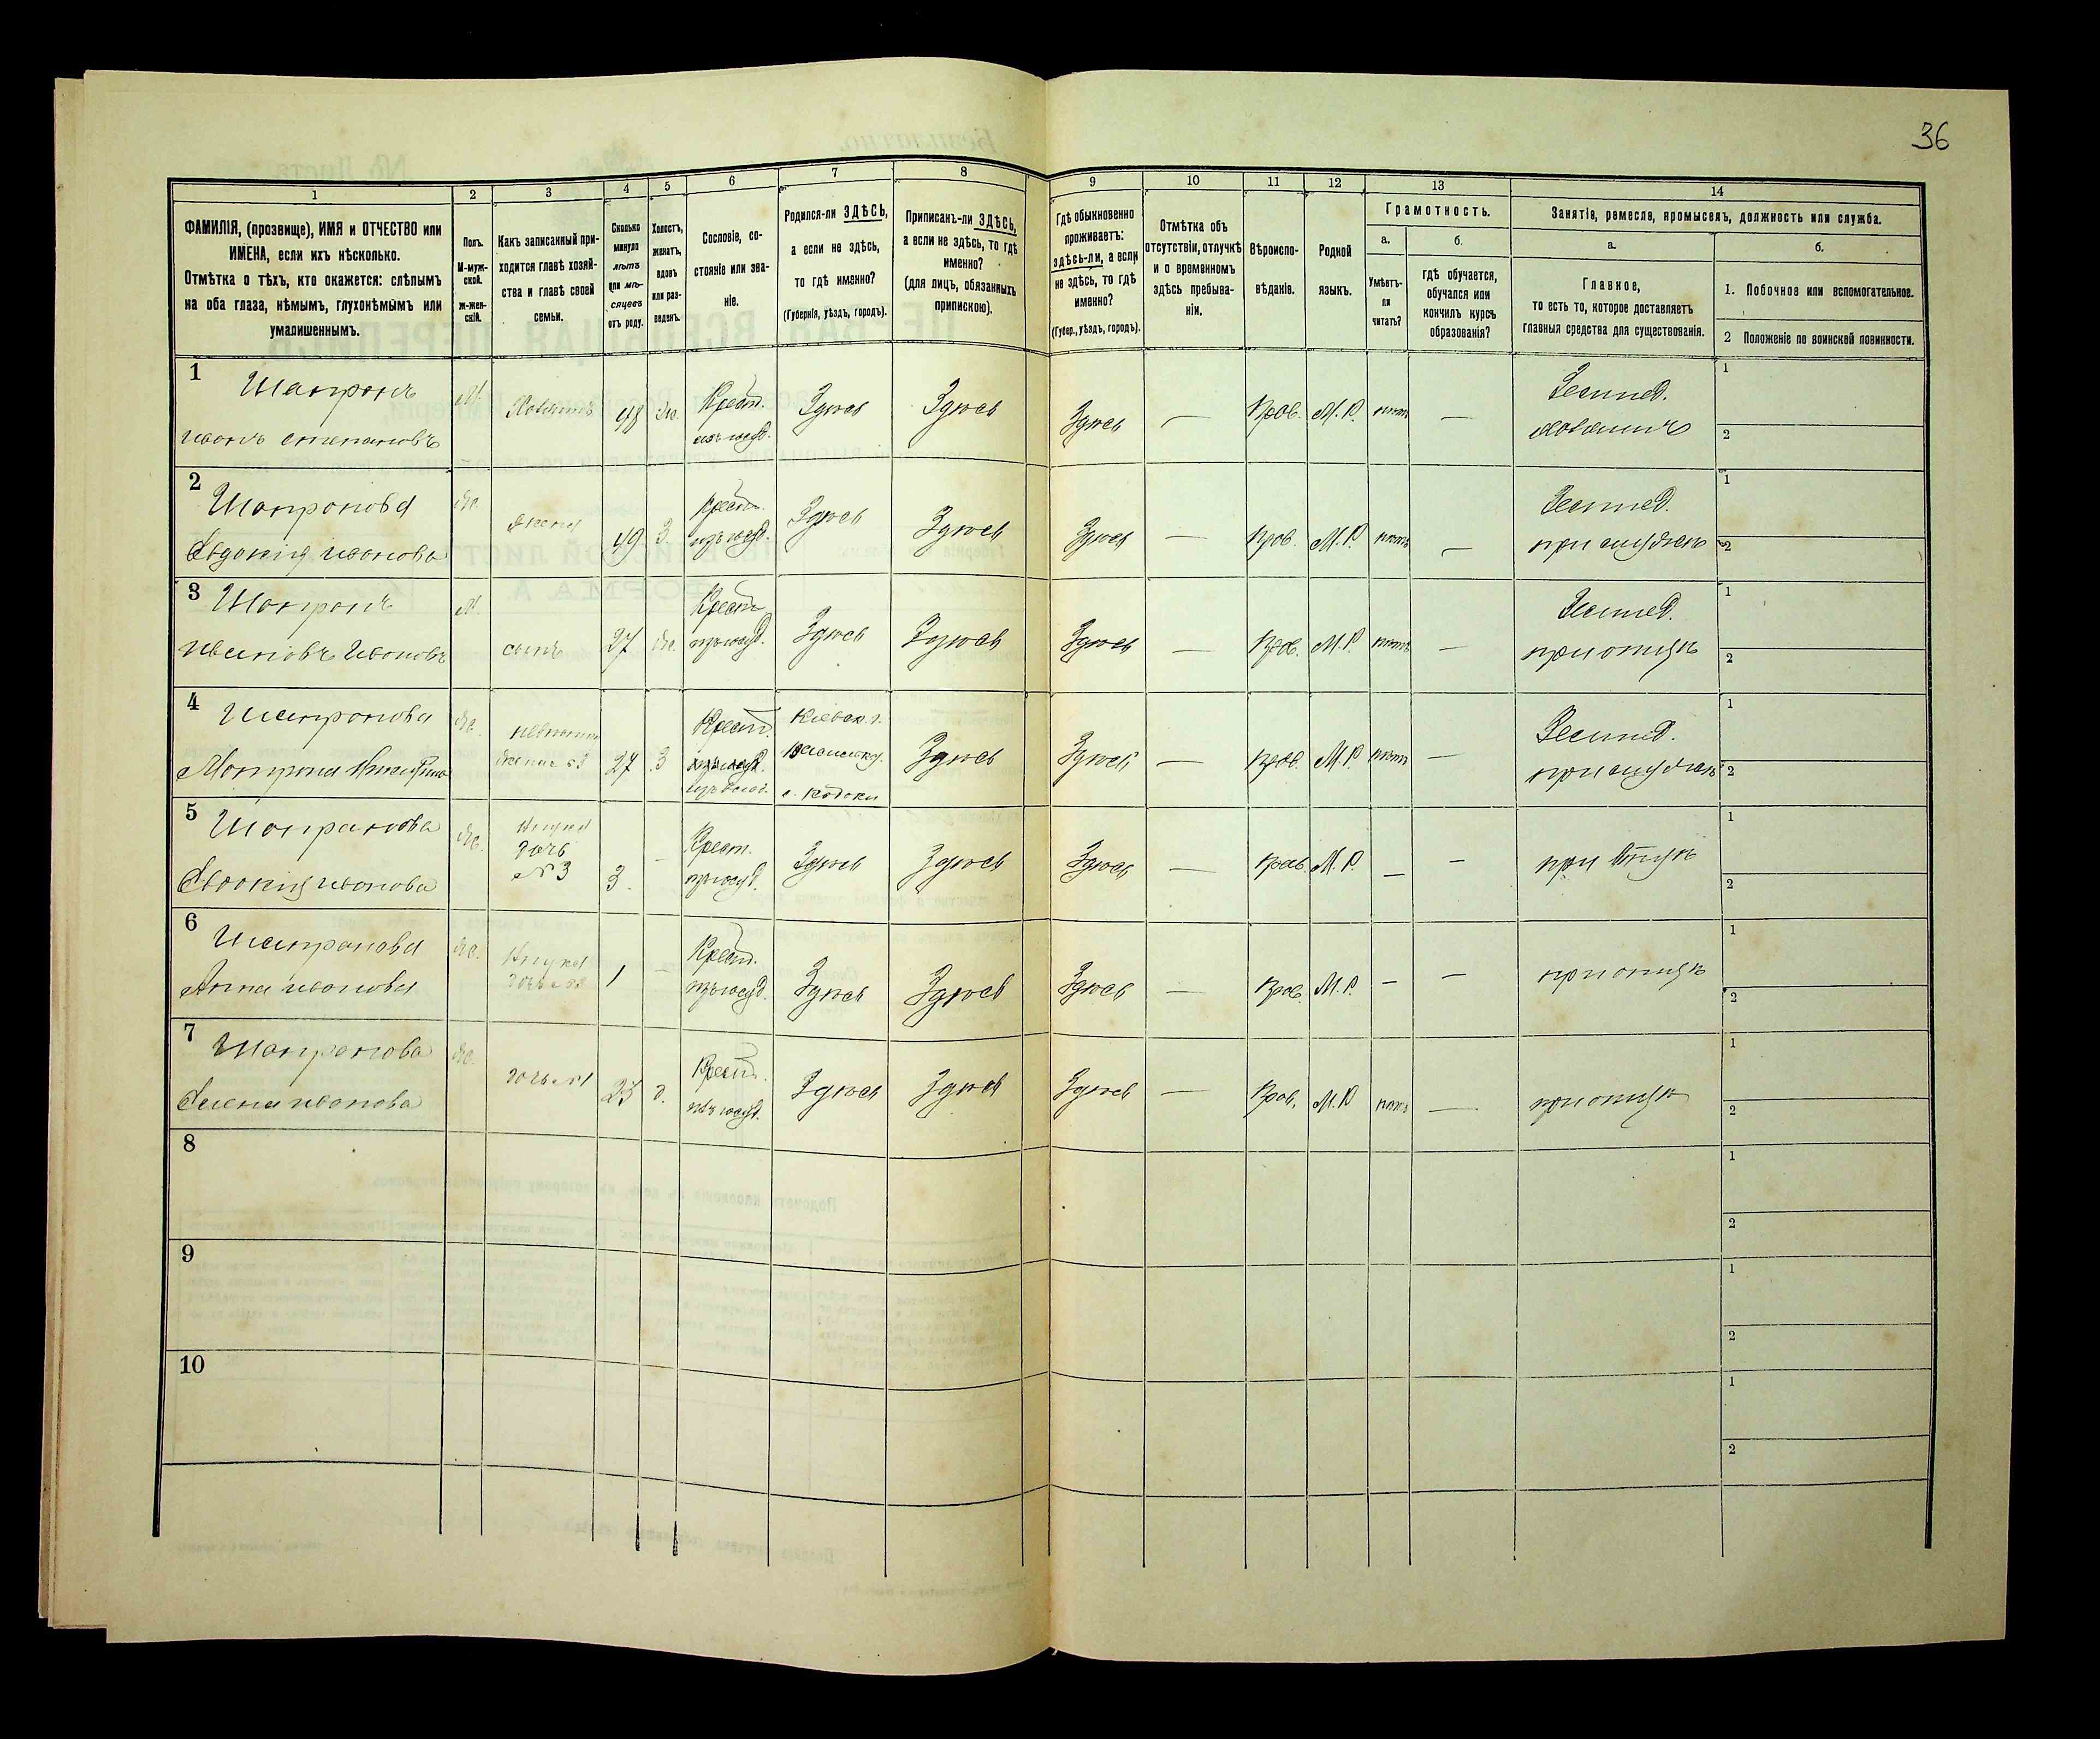 36
1 2 3 4 5 6 7 8 9 10 11 12 13 14
ФАМИЛІЯ, (прозвище), ИМЯ и ОТЧЕСТВО или ИМЕНА, если ихъ нѣсколько.
Отмѣтка о тѣхъ, кто окажется: слѣпымъ на оба глаза, нѣмымъ, глухонѣмымъ или умалишеннымъ.
Полъ. М-мужской. ж-женскій.
Какъ записанный приходится главѣ хозяйства и главѣ своей семьи.
Сколько минуло лѣтъ или мѣсяцевъ отъ роду.
Холостъ, женатъ, вдовъ или разведенъ.
Сословіе, состояніе или званіе.
Родился-ли ЗДѢСЬ, а если не здѣсь, то гдѣ именно?
(Губернія, уѣздъ, городъ).
Приписанъ-ли ЗДѢСЬ, а если не здѣсь, то гдѣ именно?
(для лицъ, обязанныхъ припискою).
Гдѣ обыкновенно проживаетъ: здѣсь-ли, а если не здѣсь, то гдѣ именно?
(Губер., уѣздъ, городъ).
Отмѣтка объ отсутствіи, отлучкѣ и о временномъ здѣсь пребываніи.
Вѣроисповѣданіе.
Родной языкъ.
Грамотность.
а.
Умѣетъ-ли читать?
б.
Гдѣ обучается, обучался или кончилъ курсъ образованія?
Занятіе, ремесло, промыселъ, должность или служба.
а.
Главное,
то есть то, которое доставляетъ главныя средства для существованія.
б.
1. Побочное или вспомогательное.
2 Положеніе по воинской повинности.
1 Шапронъ
Иванъ Степановъ М. Хозяинъ 48 Же. Крест. изъ госуд. Здѣсь Здѣсь Здѣсь — Прав. М. Р. нѣтъ — Землед. хозяинъ 1 2
2 Шапронова
Евдокія Иванова Же. жена 49 З. Крест. изъ госуд. Здѣсь Здѣсь Здѣсь — Прав. М. Р. нѣтъ — Землед. при мужѣ 1 2
3 Шапронъ
Ивановъ М. сынъ 27 Же. Крест. изъ госуд. Здѣсь Здѣсь Здѣсь — Прав. М. Р. нѣтъ — Землед. при отцѣ 1 2
4 Шапронова
Матрона Же. невѣстка жена №3 27 З Крест. Кіевск. г. с. Кодаки Здѣсь Здѣсь — Прав. М. Р. нѣтъ — Землед. при мужѣ 1 2
5 Шапронова
Евдокія Иванова Же. Внука дочь №3 3 — Крест. изъ госуд. Здѣсь Здѣсь Здѣсь — Прав. М. Р. — — при отцѣ 1 2
6 Шапронова
Анна Иванова Же. Внука дочь №3 1 — Крест. изъ госуд. Здѣсь Здѣсь Здѣсь — Прав. М. Р. — — при отцѣ 1 2
7 Шапронова
Елена Иванова Же. дочь №1 Крест. изъ госуд. Здѣсь Здѣсь Здѣсь — Прав. М. Р нѣтъ — при отцѣ 1 2
8 1 2
9 1 2
10 1 2